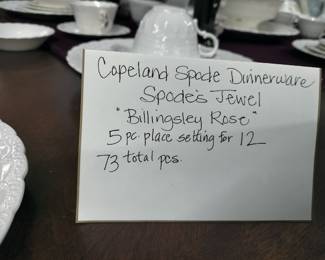 Copeland Spode Dinnerware
Spode's Jewel
"Billingsley Rose"
5 pc. place setting for 12
73 total pcs.